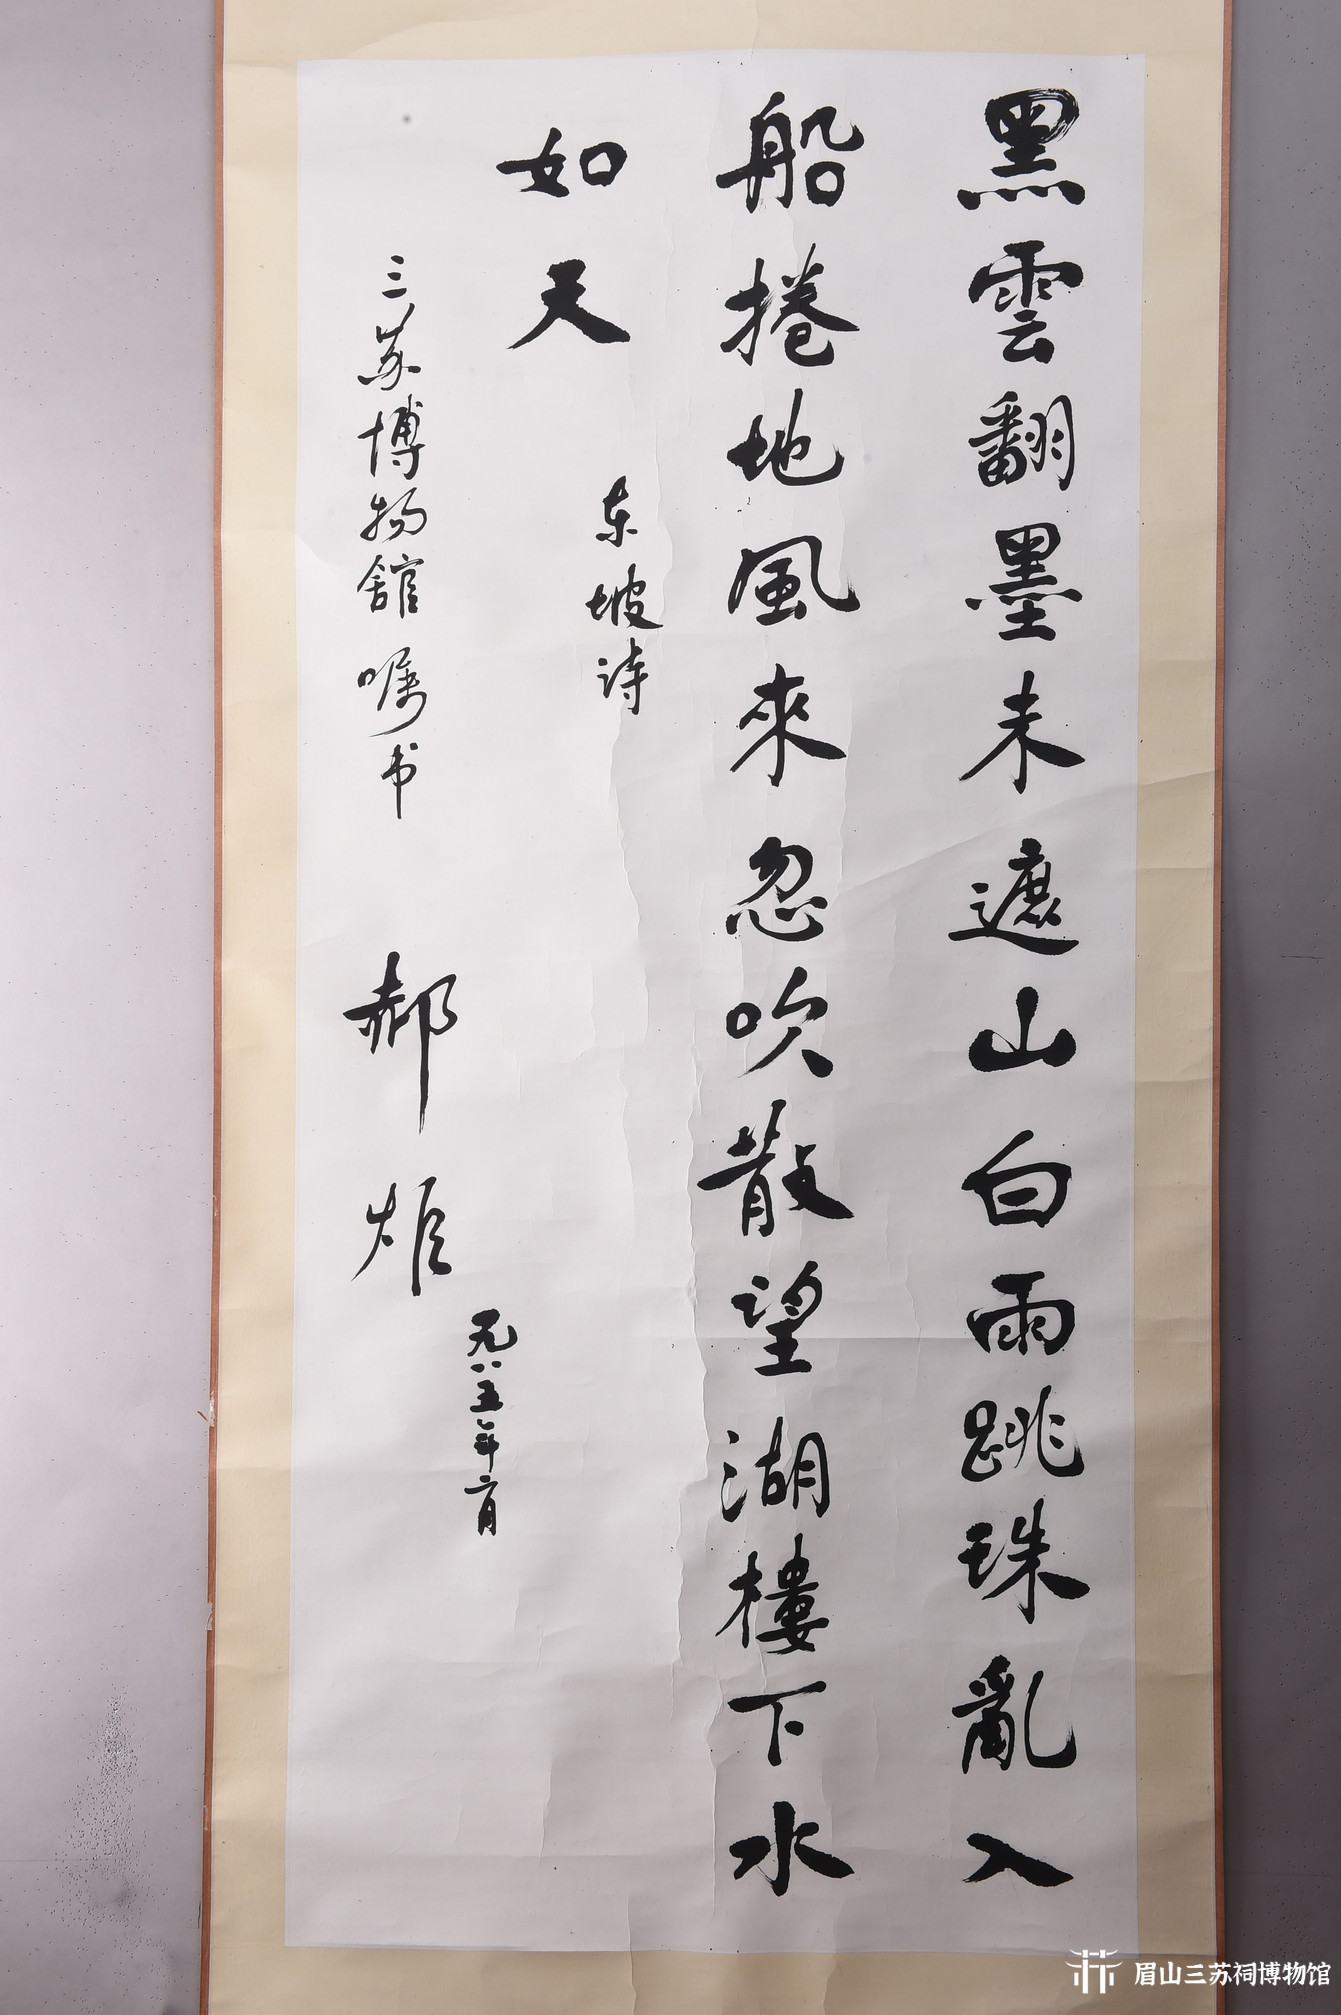 黑雲翻墨未遮山白雨跳珠亂入
船捲地風來忽吹散望湖樓下水
如天
东坡诗
三苏博物舘嘱书
郝炬
一九八五年六月
眉山三苏祠博物馆